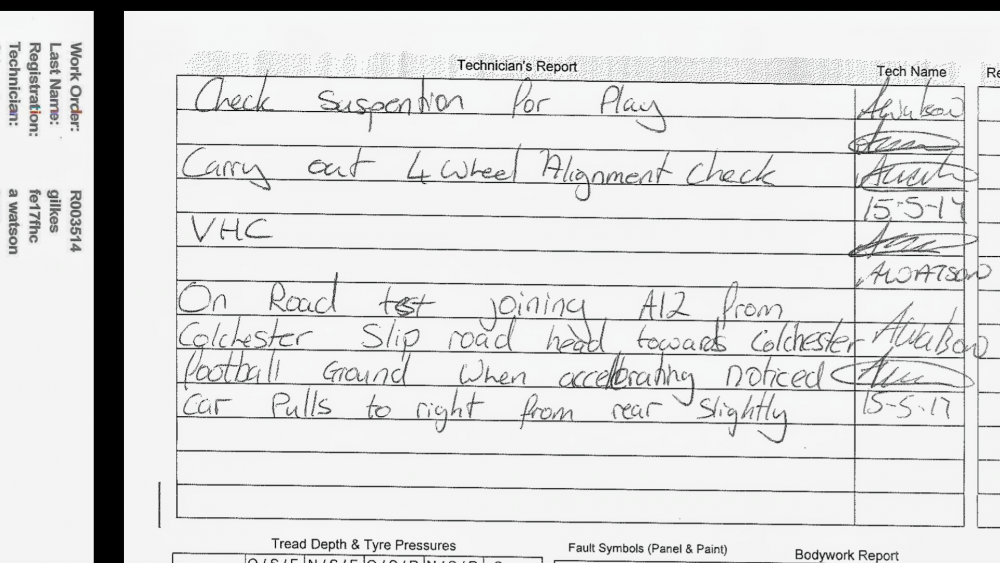 Work Order: R003514
Last Name: gilkes
Registration: fe17fhc
Technician: a watson
Technician's Report
Tech Name
Re
Check Suspention for Play
AWatson
Carry out 4 Wheel Alignment Check
15-5-17
VHC
AWATSON
On Road test joining A12 from
Colchester Slip road head towards Colchester AWatson
football Ground When accelbrating noticed
Car Pulls to right from rear slightly 15-5-17
Tread Depth & Tyre Pressures
Fault Symbols (Panel & Paint)
Bodywork Report